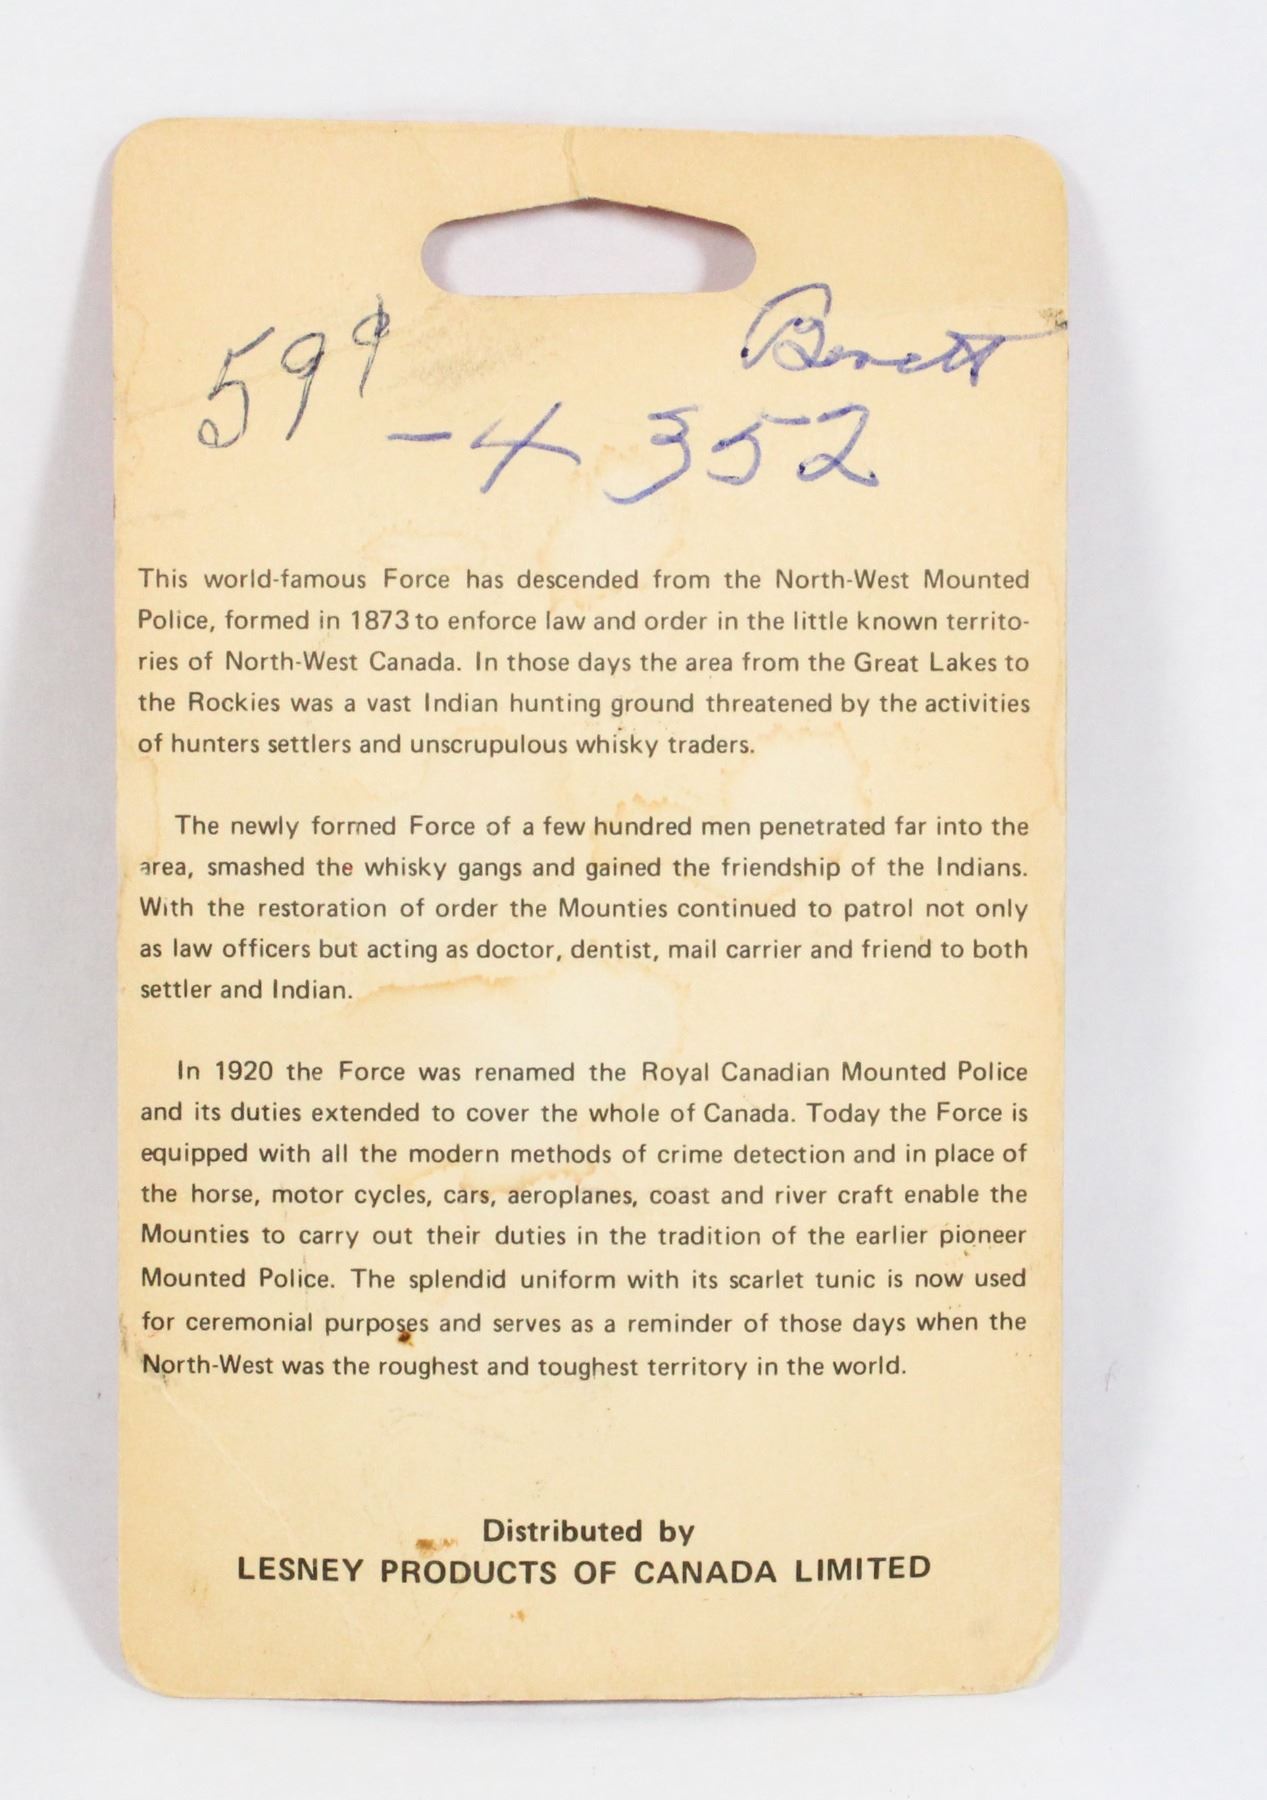 59¢
Benett
- 4 352
This world-famous Force has descended from the North-West Mounted
Police, formed in 1873 to enforce law and order in the little known territo-
ries of North-West Canada. In those days the area from the Great Lakes to
the Rockies was a vast Indian hunting ground threatened by the activities
of hunters settlers and unscrupulous whisky traders.
The newly formed Force of a few hundred men penetrated far into the
area, smashed the whisky gangs and gained the friendship of the Indians.
With the restoration of order the Mounties continued to patrol not only
as law officers but acting as doctor, dentist, mail carrier and friend to both
settler and Indian.
In 1920 the Force was renamed the Royal Canadian Mounted Police
and its duties extended to cover the whole of Canada. Today the Force is
equipped with all the modern methods of crime detection and in place of
the horse, motor cycles, cars, aeroplanes, coast and river craft enable the
Mounties to carry out their duties in the tradition of the earlier pioneer
Mounted Police. The splendid uniform with its scarlet tunic is now used
for ceremonial purposes and serves as a reminder of those days when the
North-West was the roughest and toughest territory in the world.
Distributed by
LESNEY PRODUCTS OF CANADA LIMITED